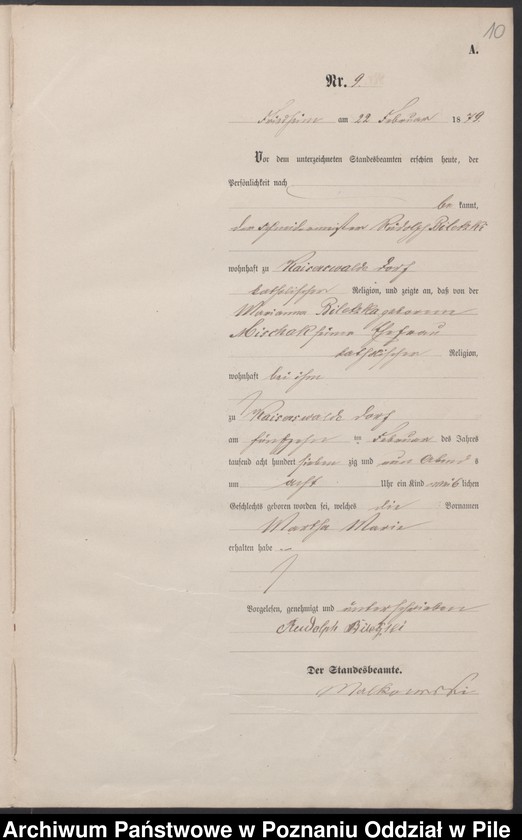 10
A.
Nr. 9.
Friedheim am 22 Februar 1879.
Vor dem unterzeichneten Standesbeamten erschien heute, der
Persönlichkeit nach
be kannt,
der Schmiedemeister Rudolph Biletzki
wohnhaft zu Kaiserswalde Dorf
katholischer Religion, und zeigte an, daß von der
Marianna Biletzka geborenen
Mischak seiner Ehefrau
katholischer Religion,
wohnhaft bei ihm
zu Kaiserswalde Dorf
am fünfzehn ten Februar des Jahres
tausend acht hundert sieben zig und neun Abend s
um acht Uhr ein Kind weib lichen
Geschlechts geboren worden sei, welches die Vornamen
Martha Marie
erhalten habe
Vorgelesen, genehmigt und unterschrieben
Rudolph Biletzki
Der Standesbeamte.
Malkowski
Archiwum Państwowe w Poznaniu Oddział w Pile